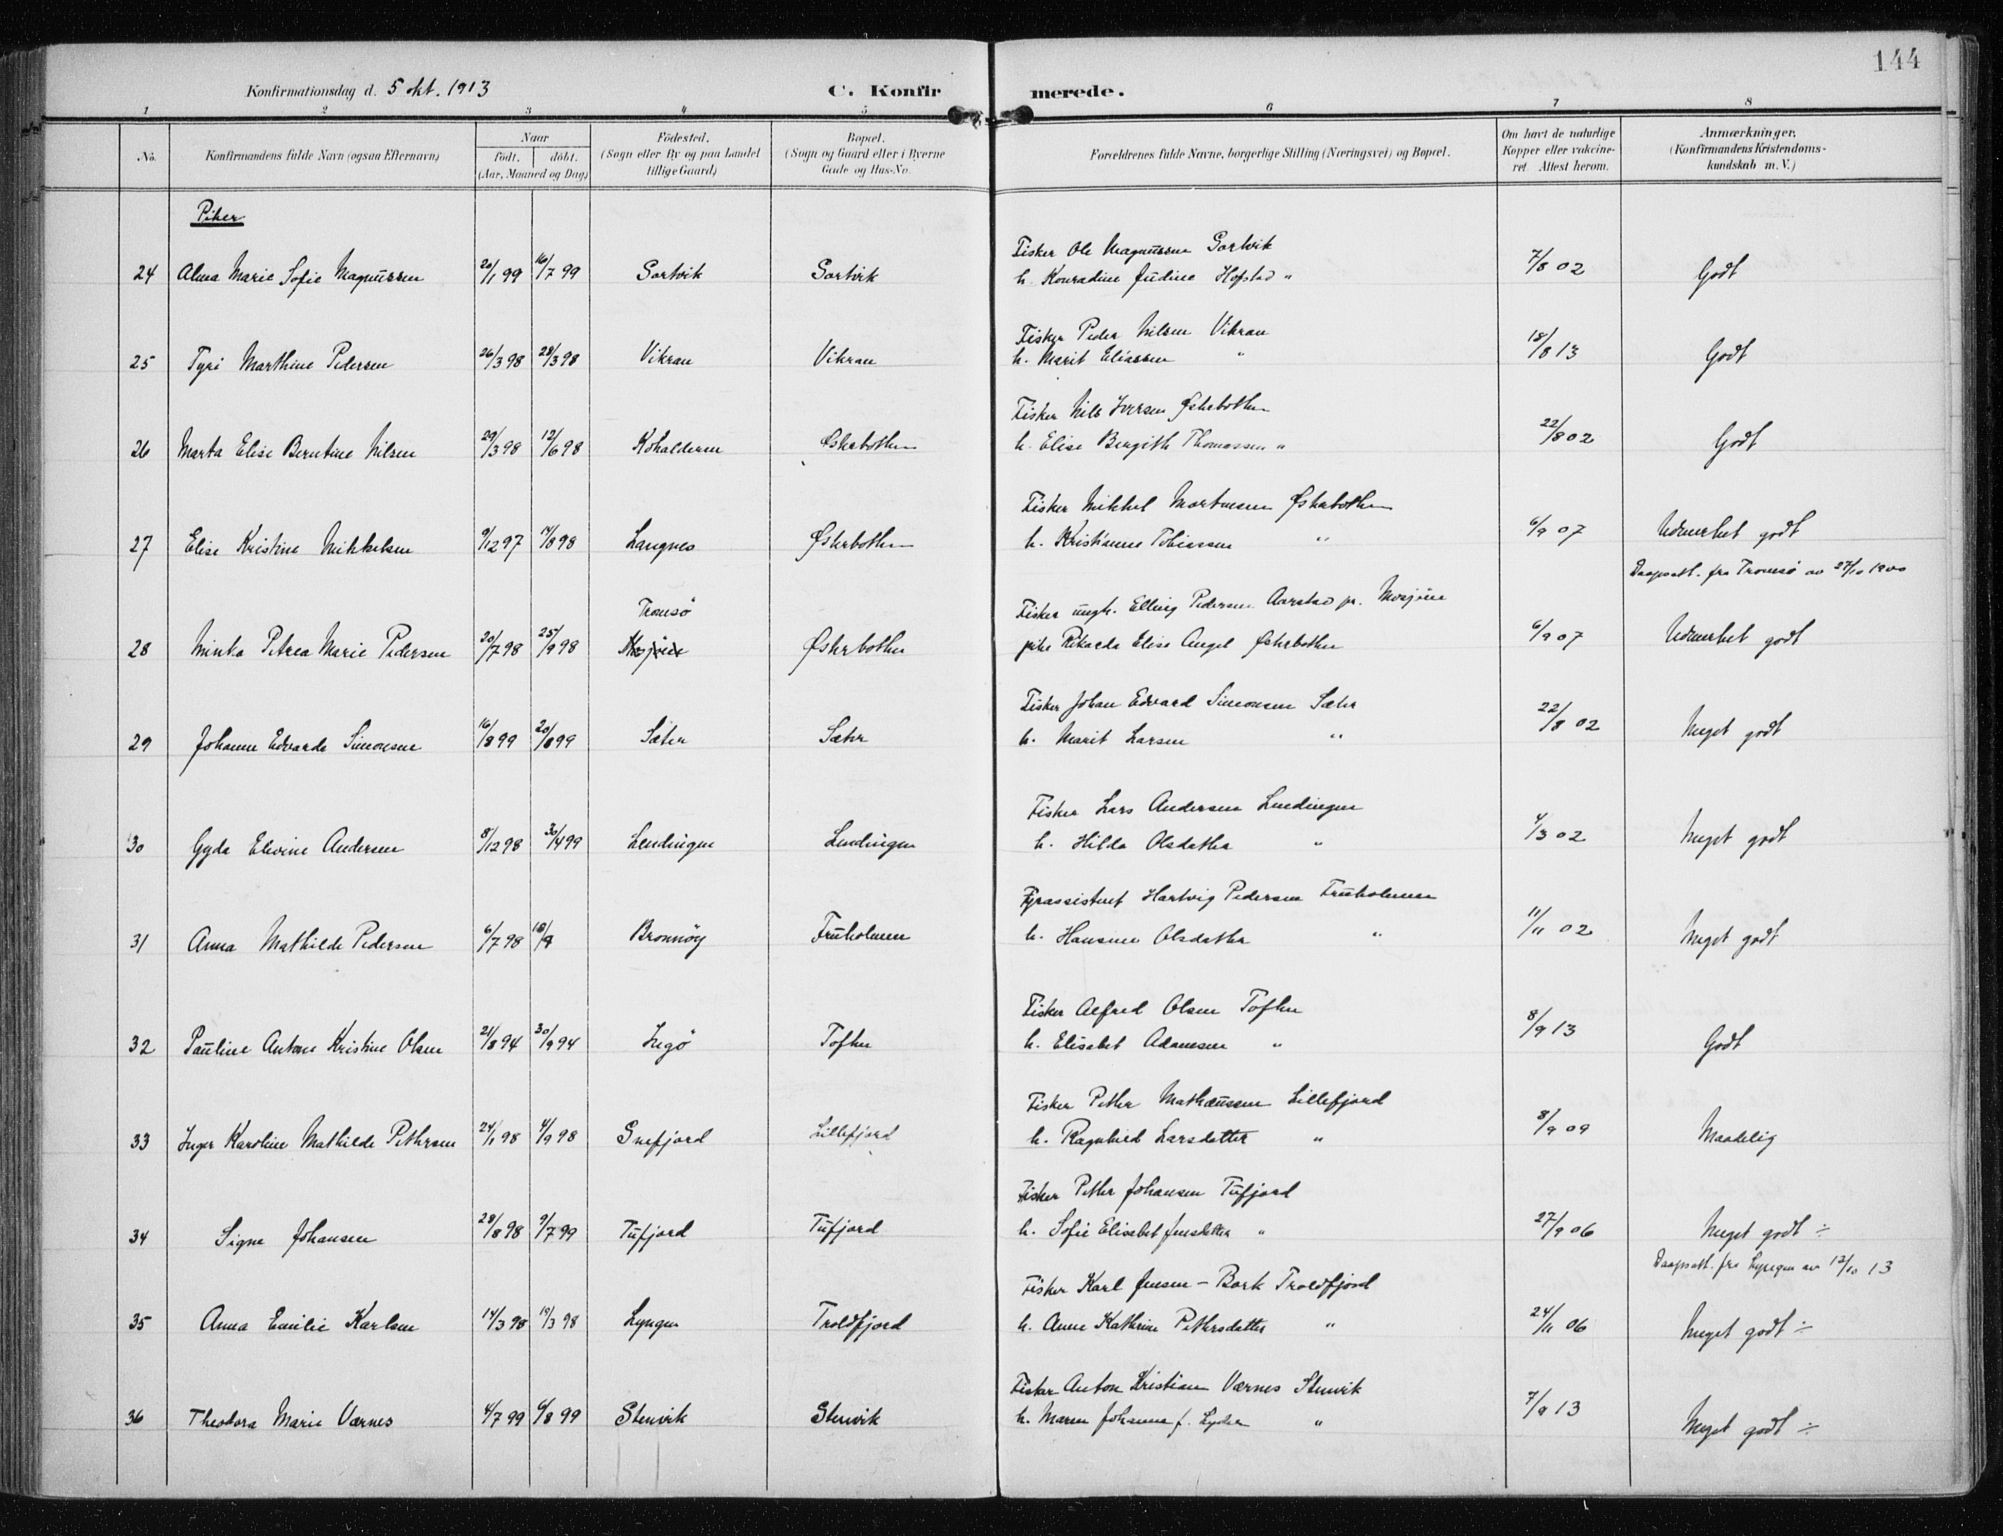 144
Konfirmationsdag d. 5 okt. 1913
C. Konfirmerede.
1 2 3 4 5 6 7 8
No.
Konfirmandens fulde Navn (ogsaa Efternavn)
Naar
født. døbt.
(Aar, Maaned og Dag)
Fødested.
(Sogn eller By og paa Landet
tillige Gaard)
Bopæl.
(Sogn og Gaard eller i Byerne
Gade og Hus-No.
Forældrenes fulde Navne, borgerlige Stilling (Næringsvei) og Bopæl.
Om havt de naturlige
Kopper eller vakcine-
ret. Attest herom.
Anmærkninger.
(Konfirmandens Kristendoms-
kundskab m. V.)
Piker
Fisker Ole Magnussen Gortvik
24 Alma Marie Sofie Magnussen 20/1 99 16/7 99 Gortvik Gortvik h. Konradine Judine Hofstad " 7/8 02 Godt
Fisker Peder Nilsen Vikran
25 Tyri Marthine Pedersen 26/3 98 28/3 98 Vikran Vikran h. Marit Eliassen " 18/8 13 Godt
Fisker Nils Iversen Østerbotten
26 Marta Elise Berntine Nilsen 29/3 98 12/6 98 Kohalderen Østerbotten h. Elise Bergith Thomassen " 22/8 02 Godt
Fisker Mikkel Mortensen Østerbotten
27 Elise Kristine Mikkelsen 9/12 97 14/8 98 Langnes Østerbotten h. Kristianne Tobiassen " 6/9 07 Udmerket godt
Daapsatt. fra Tromsø av 27/10 1900
Tromsö
Fisker ungk. Elling Pedersen Aarstad pr. Mosjøen
28 Minka Petrea Marie Pedersen 20/7 98 25/9 98 Mosjøen Østerbotten pike Rikarda Elise Angel Østerbotten 6/9 07 Udmerket godt
Fisker Johan Edvard Simonsen Sæter
29 Johanne Edvarda Simonsen 16/8 99 20/8 99 Sæter Sæter h. Marit Larsen " 22/8 02 Meget godt
Fisker Lars Andersen Lendingen
30 Gyda Elevine Andersen 8/12 98 30/4 99 Lendingen Lendingen h. Hilda Olsdatter " 4/3 02 Meget godt
Fyrassistent Hartvig Pedersen Fruholmen
31 Anna Mathilde Pedersen 6/7 98 18/9 Brønnøy Fruholmen h. Hansine Olsdatter " 11/11 02 Meget godt
Fisker Alfred Olsen Toften
32 Pauline Antone Kristine Olsen 21/8 94 30/9 94 Ingö Toften h. Elisabet Adamsen " 8/9 13 Godt
Fisker Petter Mathæussen Lillefjord
33 Inger Karoline Mathilde Pettersen 24/1 98 4/9 98 Snefjord Lillefjord h. Ragnhild Larsdatter " 8/9 09 Maadelig
Fisker Petter Johansen Tufjord
34 Signe Johansen 28/8 98 9/7 99 Tufjord Tufjord h. Sofie Elisabet Jensdatter " 27/9 06 Meget godt ÷
Daapsatt. fra Lyngen av 12/10 13
Fisker Karl Jensen - Bork Troldfjord
35 Anna Emilie Karlsen 14/3 98 19/3 98 Lyngen Troldfjord h. Anne Kathrine Pettersdatter " 24/11 06 Meget godt ÷
Fisker Anton Kristian Værnes Stenvik
36 Theodora Marie Værnes 4/7 99 6/8 99 Stenvik Stenvik h. Maren Johanna f. Lyder " 7/9 13 Meget godt ÷